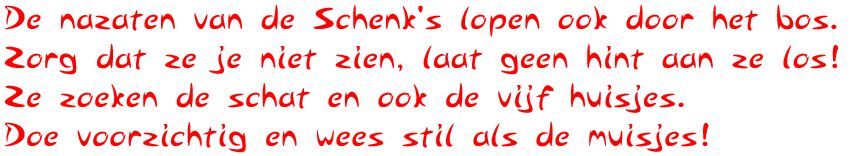 De nazaten van de Schenk's lopen ook door het bos.
Zorg dat ze je niet zien, laat geen hint aan ze los!
Ze zoeken de schat en ook de vijf huisjes.
Doe voorzichtig en wees stil als de muisjes!